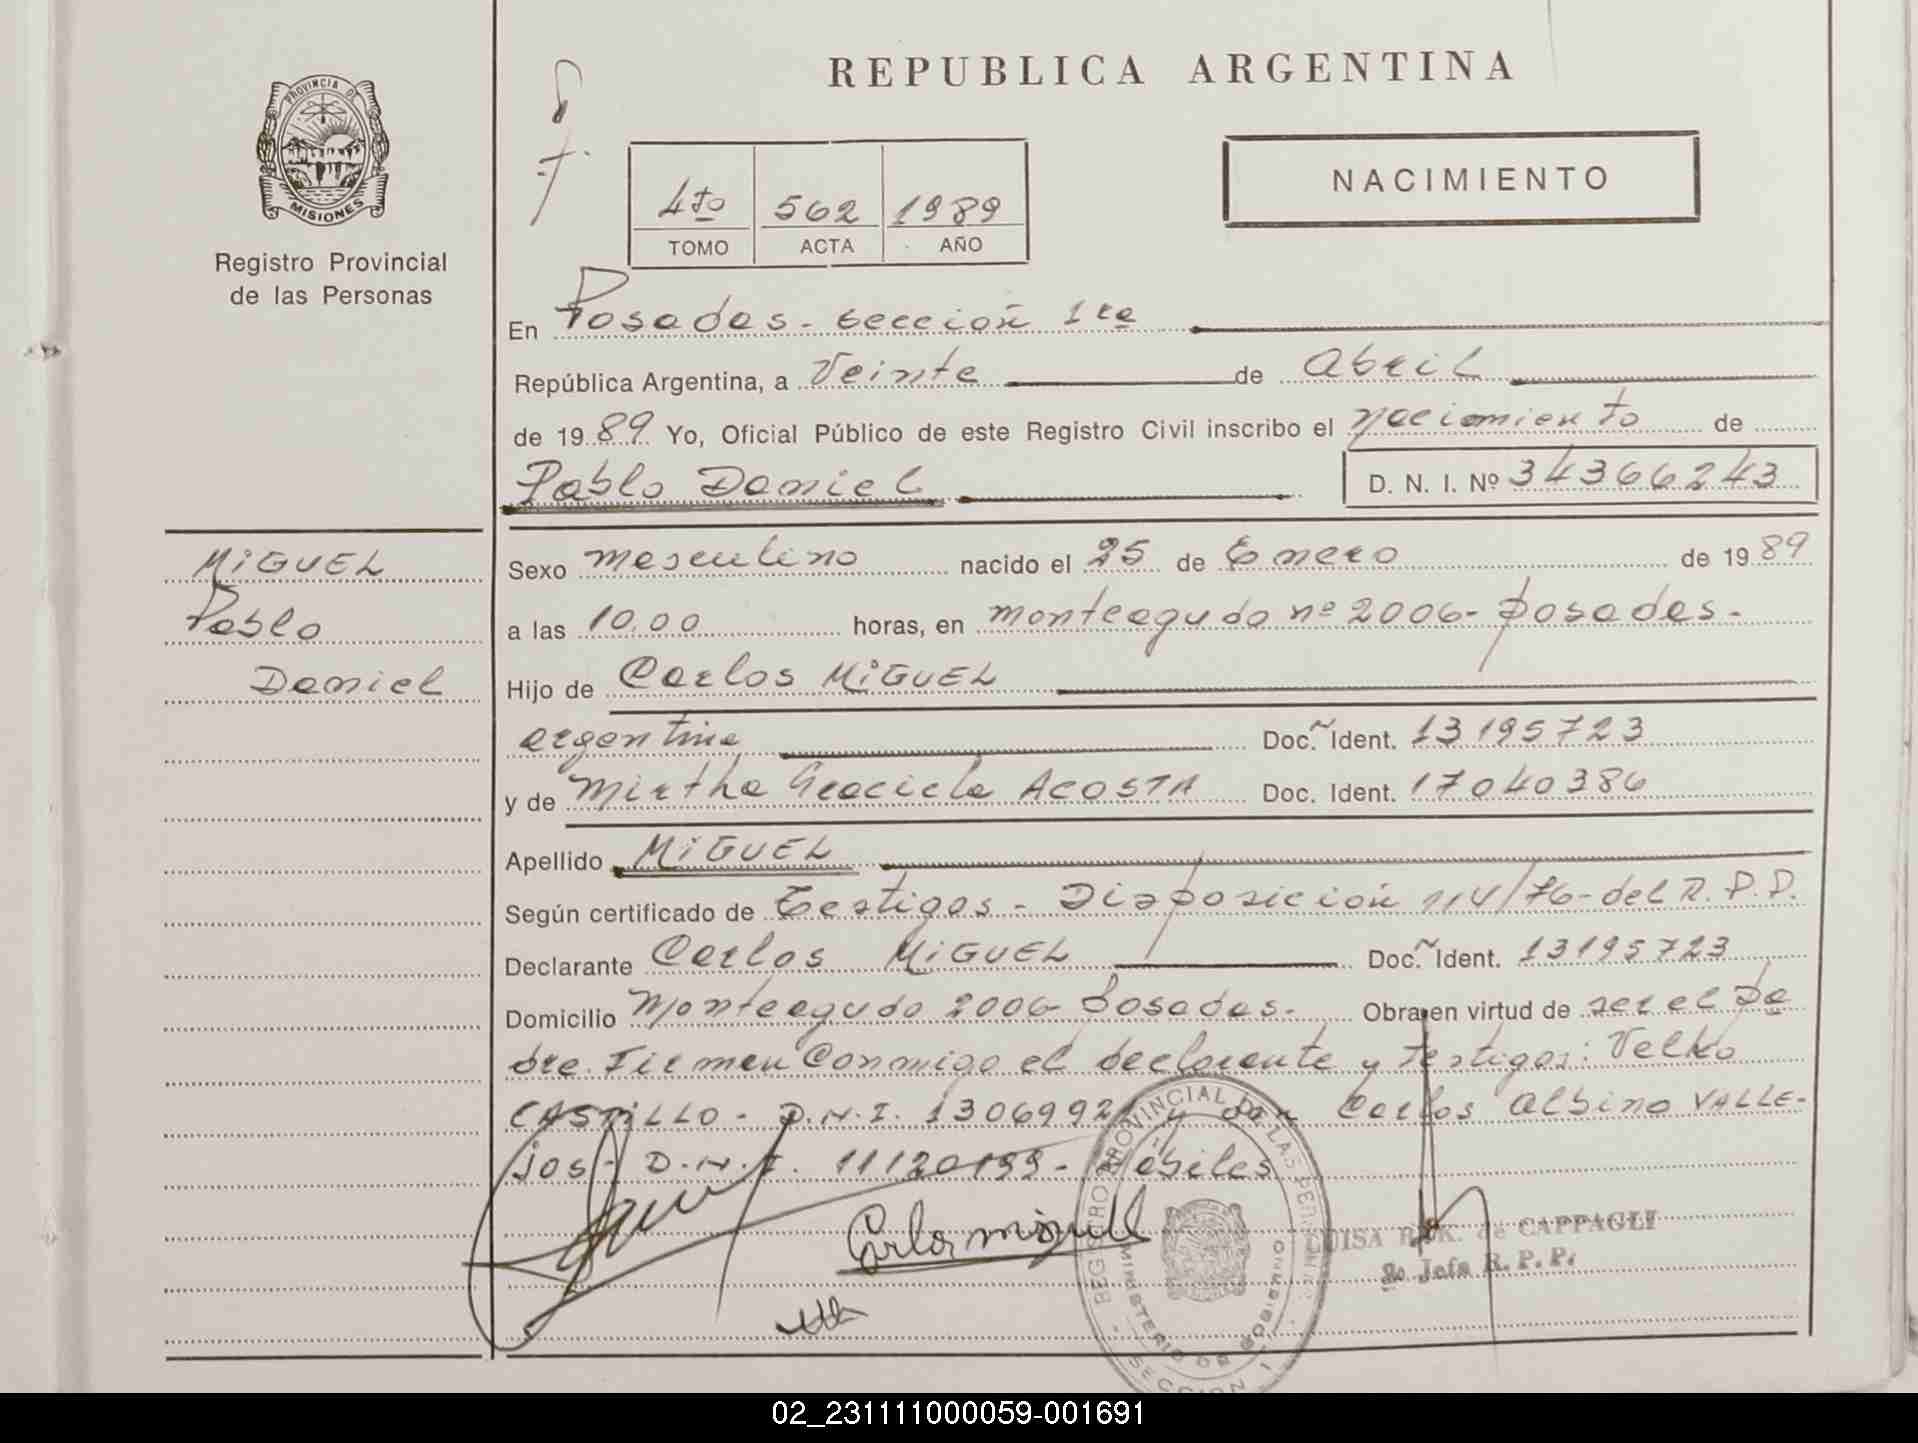 REPUBLICA ARGENTINA
PROVINCIA DE
MISIONES
Registro Provincial
de las Personas
4to 562 1989
TOMO ACTA AÑO
NACIMIENTO
En Posadas - sección 1ra
República Argentina, a Veinte de Abril
de 1989 Yo, Oficial Público de este Registro Civil inscribo el nacimiento de
Pablo Daniel D. N. I. Nº 34366243
MiGUEL
Pablo
Daniel
Sexo masculino nacido el 25 de Enero de 1989
a las 10,00 horas, en monteagudo nº 2006 - posadas -
Hijo de Carlos MiGUEL
argentino Doc. Ident. 13195723
y de Mirtha Graciela ACOSTA Doc. Ident. 17040386
Apellido MiGUEL
Según certificado de Testigos - Disposición 114/76 - del R.P.P.
Declarante Carlos MiGUEL Doc. Ident. 13195723
Domicilio Monteagudo 2006 posadas - Obra en virtud de ser el pa
dre. Firman Conmigo el declarante y testigos: Velko
CASTiLLO - D.N.I. 1306992 y don Carlos Albino VALLE-
jos - D.N.I. 11120199 - 
Carlos miguell
REGISTRO PROVINCIAL DE LAS PERSONAS
MINISTERIO DE GOBIERNO
SECCION 1
LUISA de CAPPAGLI
Jefa R. P. P.
02_231111000059-001691